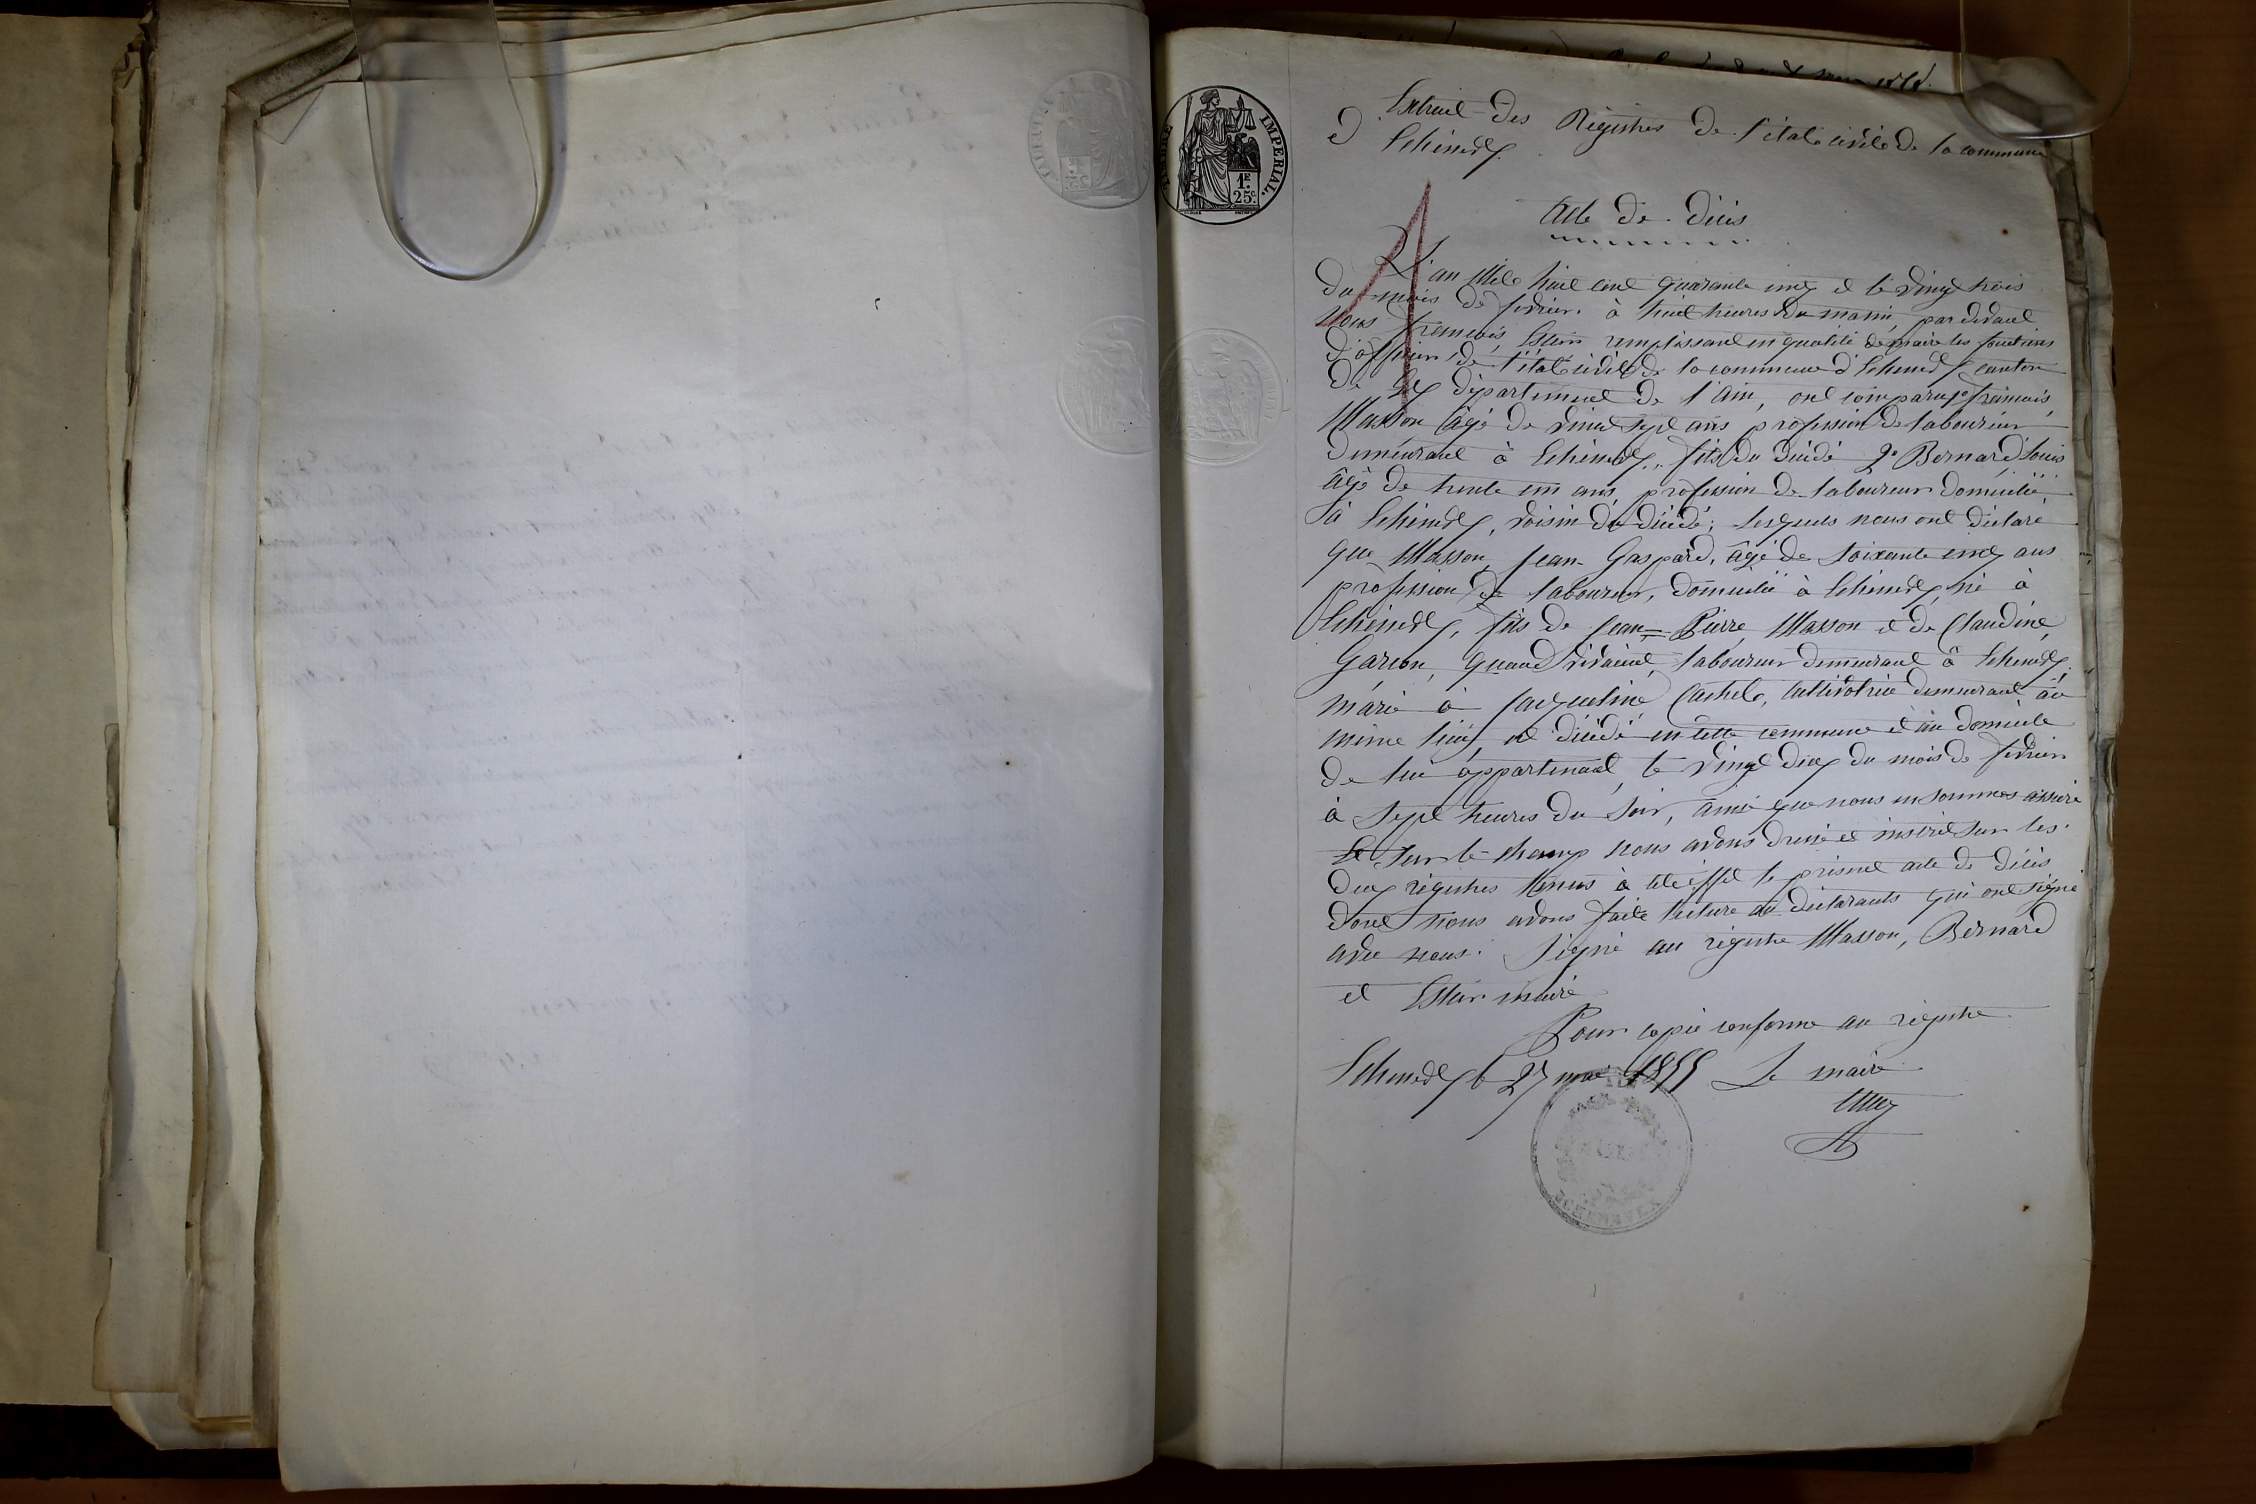 TIMBRE IMPERIAL.
1F.
25c.
Extrait Des Régistres De l'état civile De la commune
D Echenevex
Acte De Décès
L'an Mile huit cent quarante cinq et le Vingt trois
Du mois De fevrier à huit heures Du matin, par devant
Nous francois Estier remplissant en qualité de maire les fonctions
D'officier De l'état civile De la commune D'Echenevex canton
De Gex Département De l'Ain, ont comparu 1° francois
Masson âgé De Vingt sept ans profession De laboureur
Demeurant à Echenevex, fils Du Décédé 2° Bernard Louis
âgé De trente un ans, profession De laboureur Domicilié
à Echenevex, voisin Du Décédé; lesquels nous ont Déclaré
que Masson Jean Gaspard, âgé De soixante cinq ans
profession De laboureur, Domicilié à Echenevex, né à
Echenevex, fils De Jean-Pierre Masson et De Claudine
quand vivaient, laboureur Demeurant à Echenevex,
marié à Jacqueline cultivatrice Demeurant au
même lieu, est Décédé en cette commune et au Domicile
De lui appartenant, le Vingt Deux Du mois De fevrier
à Sept heures Du Soir, ainsi que nous en sommes assuré
Et Sur le champ nous avons Dressé et inscrit Sur les
Deux régistres tenus à cet effet le présent acte De Décès
Dont nous avons faite lecture au Déclarants qui ont signé
avec nous. Signé au régistre Masson, Bernard
et Estier maire
Pour copie conforme au régistre
Echenevex le 27 mai 1855 Le maire